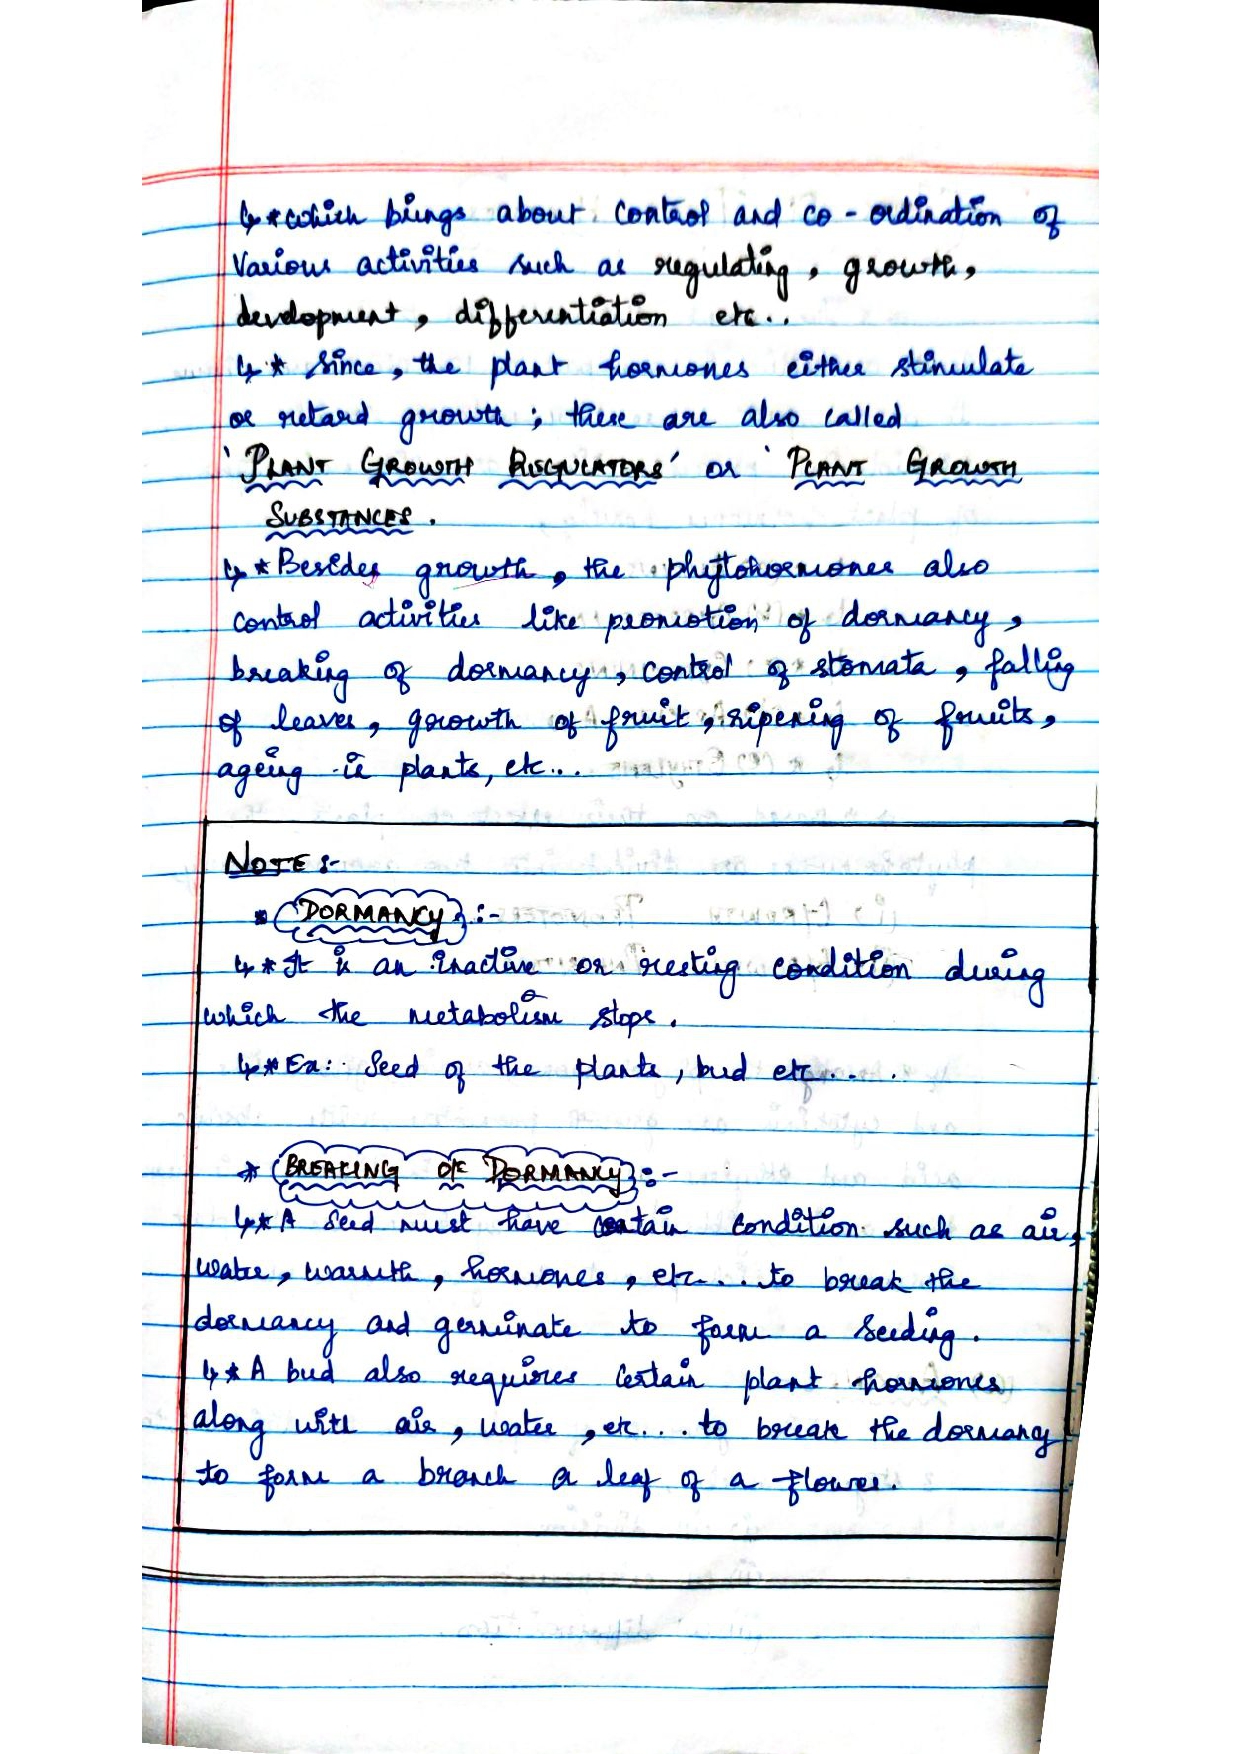 ↳*which brings about control and co-ordination of
Various activities such as regulating, growth,
development, differentiation etc..
↳* Since, the plant hormones either stimulate
or retard growth; these are also called
'PLANT GROWTH REGULATORS' or 'PLANT GROWTH
SUBSTANCES.
↳*Besides growth, the phytohormones also
control activities like promotion of dormancy,
breaking of dormancy, control of stomata, falling
of leaves, growth of fruit, ripening of fruits,
ageing in plants, etc...
NOTE:-
* DORMANCY:-
↳*It is an inactive or resting condition during
which the metabolism stops.
↳*Ex: Seed of the plants, bud etc.....
* BREAKING OF DORMANCY:-
↳*A seed must have certain condition such as air,
water, warmth, hormones, etc... to break the
dormancy and germinate to form a seeding.
↳*A bud also requires certain plant hormones
along with air, water, etc... to break the dormancy
to form a branch a leaf of a flower.